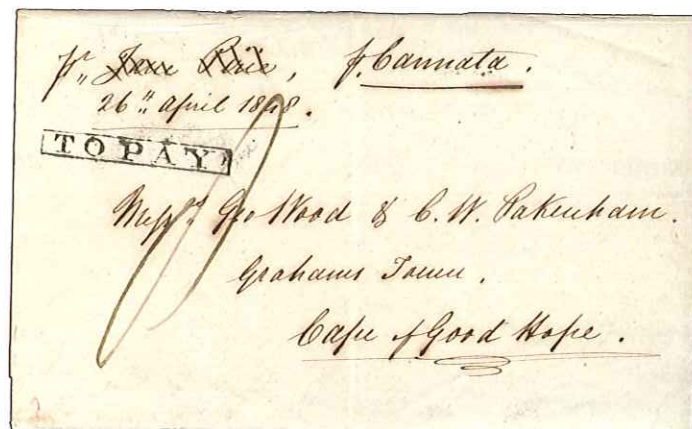 pr. Jane Pirie, p. Cannata.
26th april 1848.
TO PAY
Messrs. Geo Wood & C. W. Pakenham.
Grahams Town.
Cape of Good Hope.